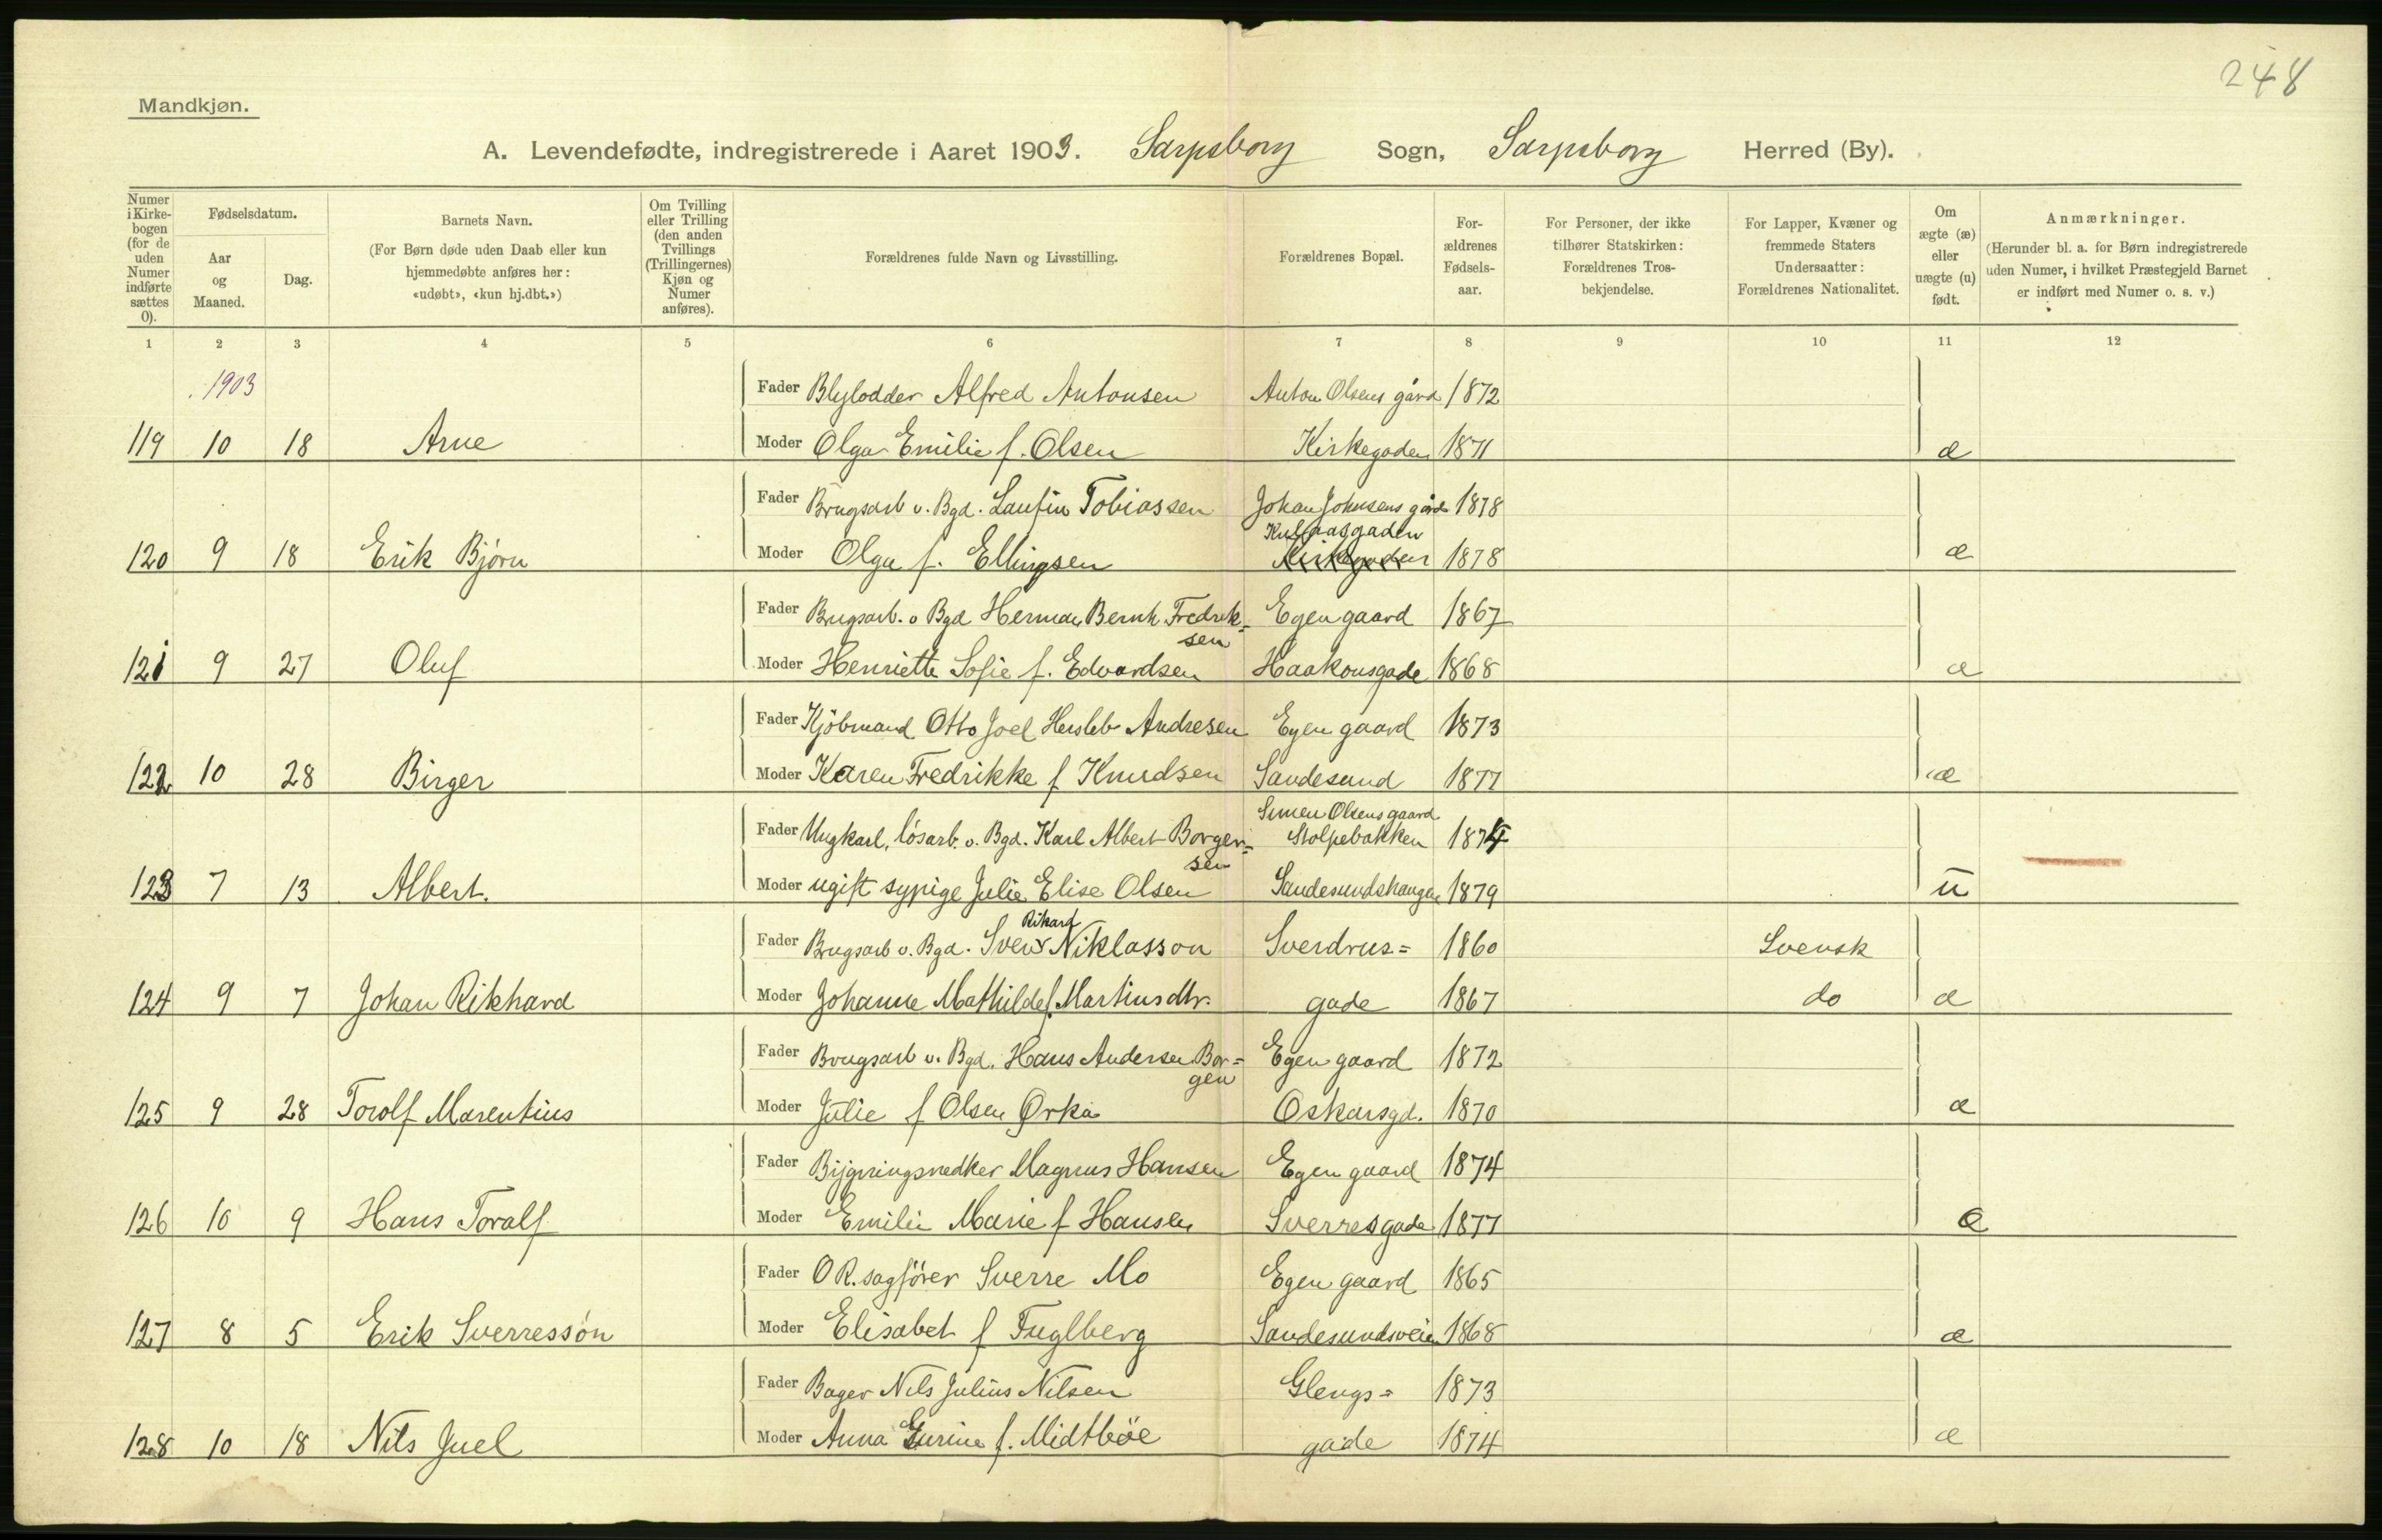 248
Mandkjøn.
A. Levendefødte, indregistrerede i Aaret 1903. Sarpsborg Sogn, Sarpsborg Herred (By).
Numer i Kirkebogen (for de uden Numer indførte sættes 0).
Fødselsdatum.
Aar og Maaned.
Dag.
Barnets Navn.
(For Børn døde uden Daab eller kun hjemmedøbte anføres her: «udøbt», «kun hj.dbt.»)
Om Tvilling eller Trilling (den anden Tvillings (Trillingernes) Kjøn og Numer anføres).
Forældrenes fulde Navn og Livsstilling.
Forældrenes Bopæl.
Forældrenes Fødselsaar.
For Personer, der ikke tilhører Statskirken: Forældrenes Trosbekjendelse.
For Lapper, Kvæner og fremmede Staters Undersaatter: Forældrenes Nationalitet.
Om ægte (æ) eller uægte (u) født.
Anmærkninger.
(Herunder bl. a. for Børn indregistrerede uden Numer, i hvilket Præstegjeld Barnet er indført med Numer o. s. v.)
1 2 3 4 5 6 7 8 9 10 11 12
1903 Fader Blylodder Alfred Antonsen Anton Olsens gård 1872
119 10 18 Arne Moder Olga Emilie f. Olsen Kirkegaden 1871 æ
Fader Brugsarb v. Bgd. Laufin Tobiassen Johan Johnsens gård 1878
120 9 18 Erik Bjørn Moder Olga f. Ellingsen Kirkegaden 1878 æ
Fader Brugsarb. v Bgd Herman Bernh. Fredrik= Egen gaard 1867
sen
121 9 27 Oluf Moder Henriette Sofie f. Edvardsen Haakonsgade 1868 æ
Fader Kjøbmand Otto Joel Hersleb Andresen Egen gaard 1873
122 10 28 Birger Moder Karen Fredrikke f Knudsen Sandesund 1877 æ
Simen Olsens gaard
Fader Ungkarl, løsarb. v. Bgd. Karl Albert Borger= Stolpebakken 1874
sen
123 7 13 Albert. Moder ugift sypige Julie Elise Olsen Sandesundshaugen 1879 u
Rikard
Fader Brugsarb v. Bgd. Sven Niklasson Sverdrus= 1860 Svensk
124 9 7 Johan Rikhard Moder Johanne Mathilde f. Martinsdtr. gade 1867 do æ
Fader Brugsarb v. Bgd. Hans Andersen Bor= Egen gaard 1872
gen
125 9 28 Torolf Marentius Moder Julie f Olsen Ørka Oskarsgd. 1870 æ
Fader Bygningsnedker Magnus Hansen Egen gaard 1874
126 10 9 Hans Toralf Moder Emilie Marie f Hansen Sverresgade 1877 æ
Fader O R. sagfører Sverre Mo Egen gaard 1865
127 8 5 Erik Sverressøn Moder Elisabet f Fuglberg Sandesundsveien 1868 æ
Fader Bager Nils Julius Nilsen Glengs= 1873
128 10 18 Nils Juel Moder Anna Gurine f. Midtbøe gade 1874 æ